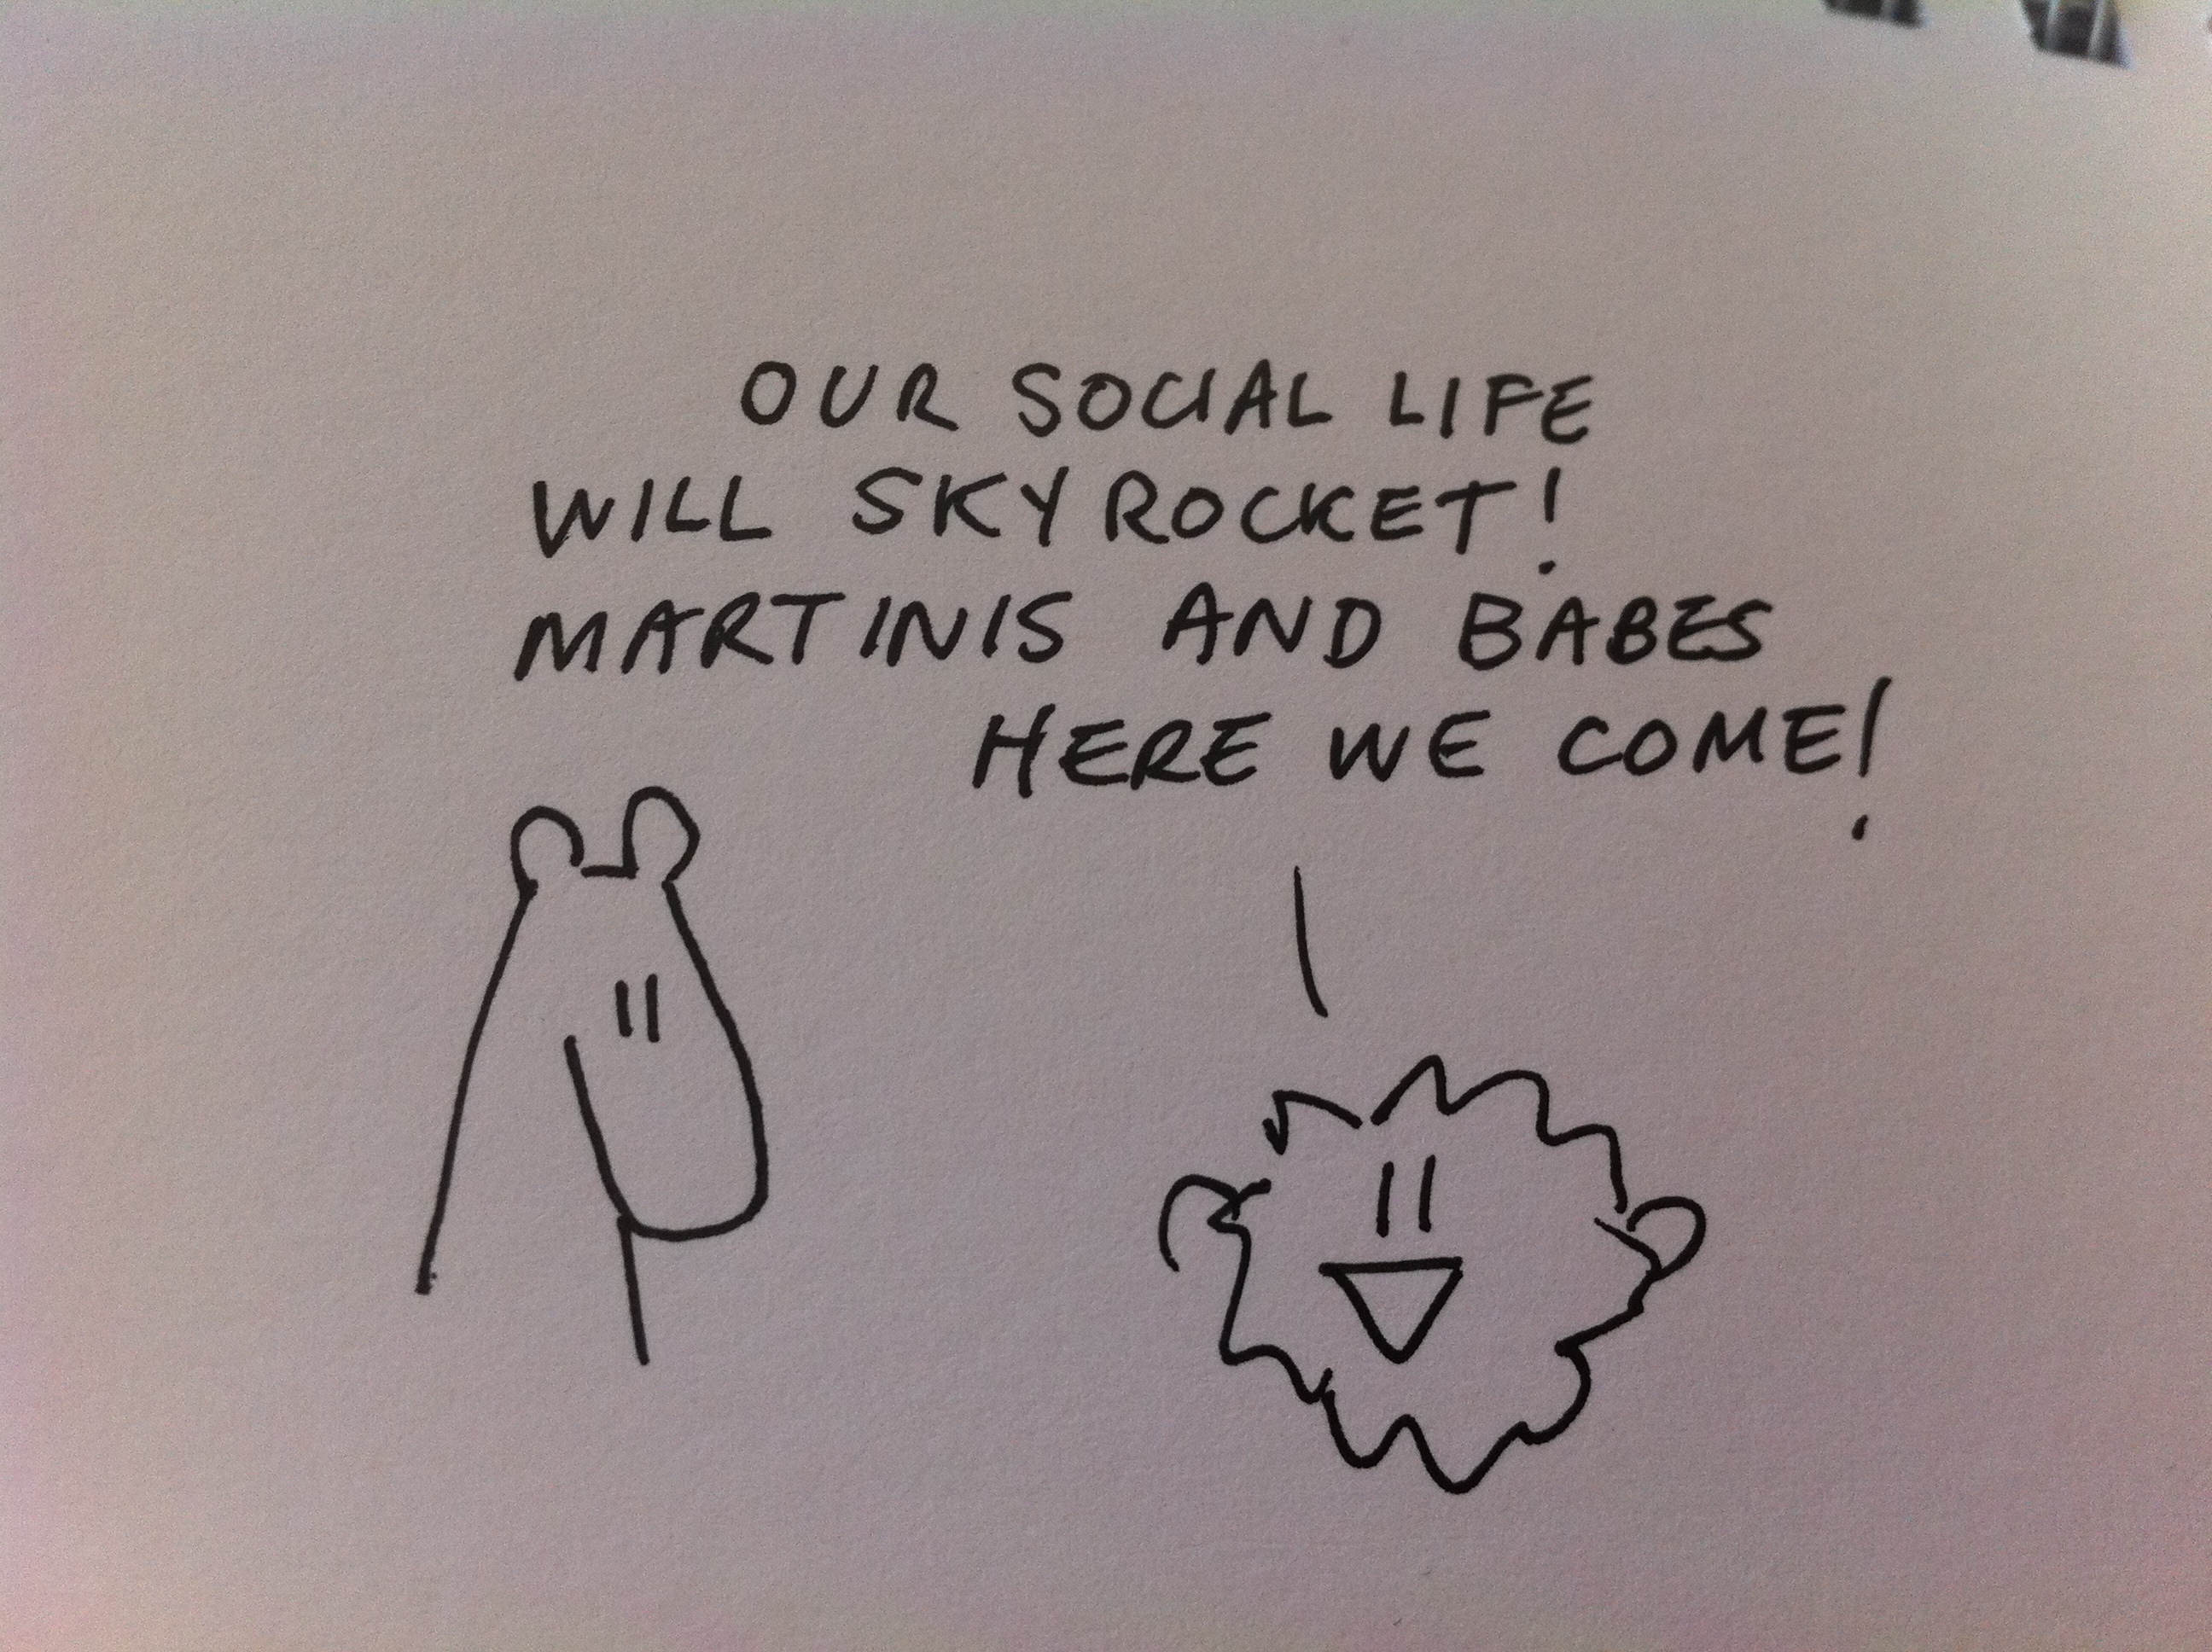 OUR SOCIAL LIFE
WILL SKYROCKET!
MARTINIS AND BABES
HERE WE COME!